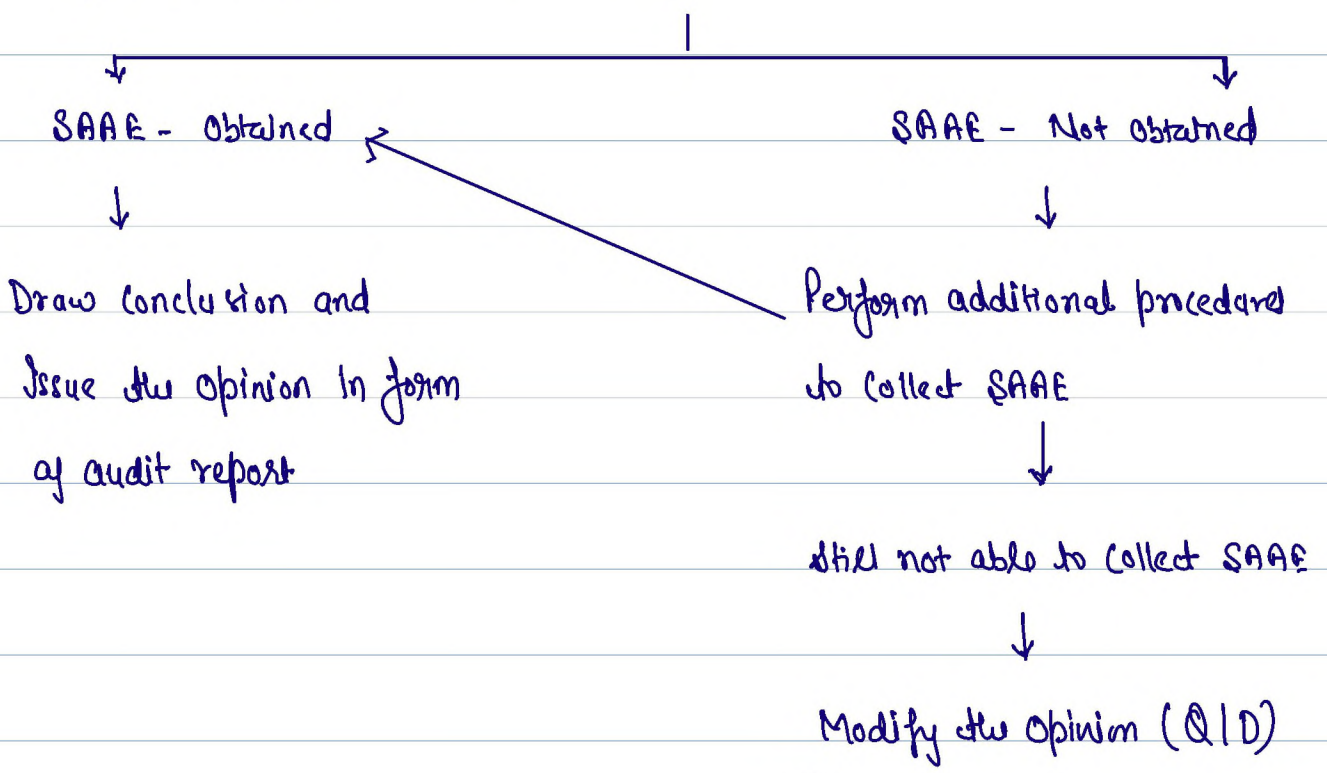 SAAE - Obtained
SAAE - Not obtained
Draw conclusion and
Issue the opinion In form
of audit report
Perform additional procedures
to collect SAAE
Still not able to collect SAAE
Modify the opinion (Q|D)